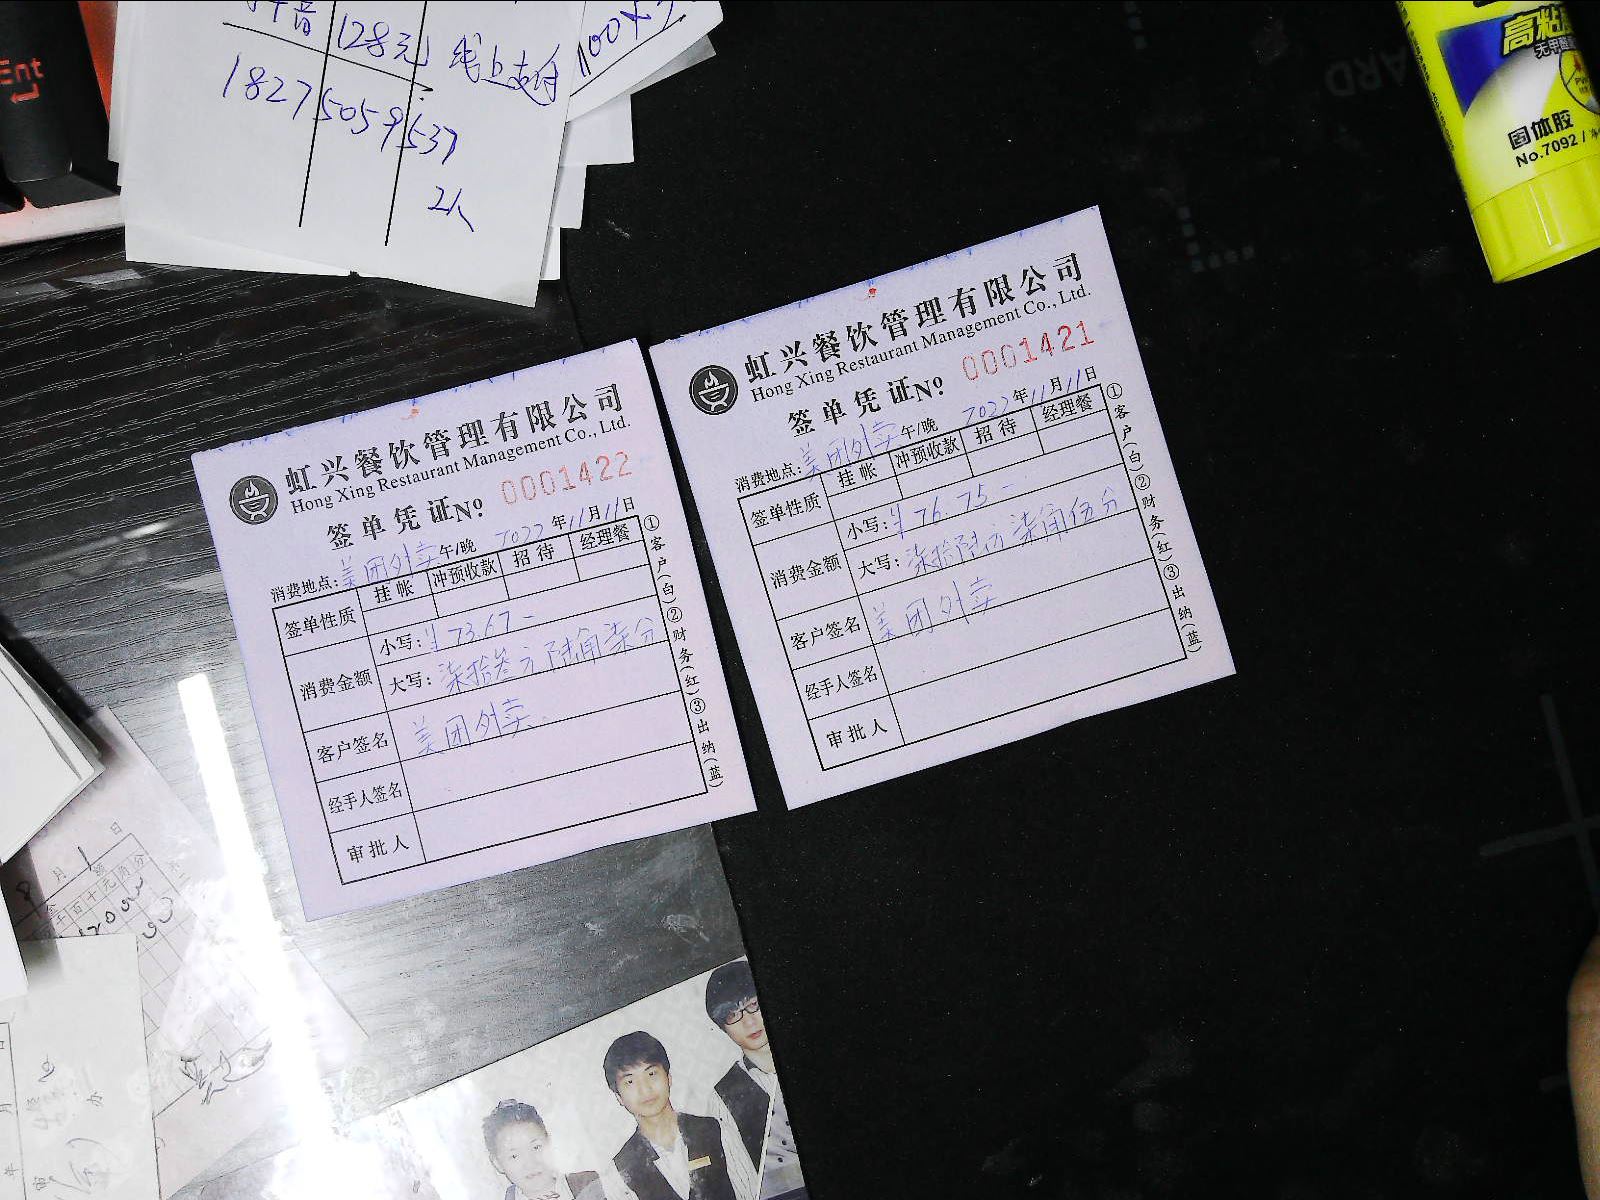 Ent
128元 线上支付
18275059537
2人
高粘度
固体胶
No.7092
虹兴餐饮管理有限公司
Hong Xing Restaurant Management Co., Ltd.
签单凭证No 0001422
消费地点: 美团外卖 午/晚 2022年11月11日
签单性质 挂帐 冲预收款 招待 经理餐
消费金额 小写: ¥73.67-
大写: 柒拾叁元陆角柒分
客户签名 美团外卖
经手人签名
审批人
①客户(白)②财务(红)③出纳(蓝)
虹兴餐饮管理有限公司
Hong Xing Restaurant Management Co., Ltd.
签单凭证No 0001421
消费地点: 美团外卖 午/晚 2022年11月11日
签单性质 挂帐 冲预收款 招待 经理餐
消费金额 小写: ¥76.75-
大写: 柒拾陆元柒角伍分
客户签名 美团外卖
经手人签名
审批人
①客户(白)②财务(红)③出纳(蓝)